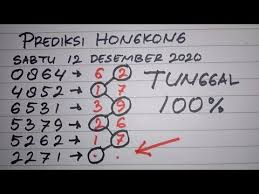 PREDIKSI HONGKONG
SABTU 12 DESEMBER 2020
0864 → 6 2
4852 → 1 7
6531 → 3 9
5379 → 2 6
5262 → 1 7
2271 → . .
TUNGGAL
100%